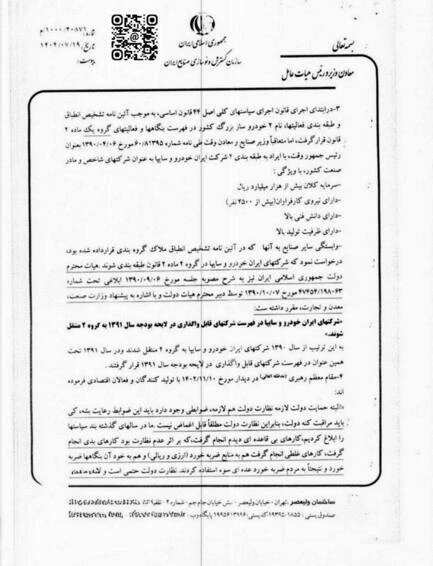 بسمه‌تعالی
جمهوری اسلامی ایران
سازمان گسترش و نوسازی صنایع ایران
معاون وزیر و رئیس هیات عامل
شماره: ۱۰۰۰/۲۰۸۷۱/م
تاریخ: ۱۴۰۲/۰۷/۱۹
پیوست:
۳-درابتدای اجرای قانون اجرای سیاستهای کلی اصل ۴۴ قانون اساسی، به موجب آئین نامه تشخیص انطباق
و طبقه بندی فعالیتها، نام ۲ خودرو ساز بزرگ کشور در فهرست بنگاهها و فعالیتهای گروه یک ماده ۲
قانون قرارگرفت، اما متعاقباً وزیر صنایع و معادن وقت طی نامه شماره ۶۰/۸۱۳۹۵ مورخ ۱۳۹۰/۰۴/۰۶ بعنوان
رئیس جمهور وقت، با ایراد به طبقه بندی ۲ شرکت ایران خودرو و سایپا به عنوان شرکتهای شاخص و مادر
صنعت کشور، با ویژگی :
-سرمایه کلان بیش از هزار میلیارد ریال
-دارای نیروی کارفراوان(بیش از ۲۵۰۰ نفر)
-دارای دانش فنی بالا
-دارای ظرفیت تولید بالا
-وابستگی سایر صنایع به آنها که در آئین نامه تشخیص انطباق ملاک گروه بندی قرارداده شده بود،
درخواست نمود که شرکتهای ایران خودرو و سایپا در گروه ۲ ماده ۲ قانون طبقه بندی شوند. هیات محترم
دولت جمهوری اسلامی ایران نیز به شرح مصوبه جلسه مورخ ۱۳۹۰/۰۹/۰۶ ابلاغی تحت شماره
۴۷۴۵۴/۱۹۸۰۶۳ مورخ ۱۳۹۰/۱۰/۰۷ توسط دبیر محترم هیات دولت و با اشاره به پیشنهاد وزارت صنعت،
معدن و تجارت، مقرر داشته است:
«شرکتهای ایران خودرو و سایپا در فهرست شرکتهای قابل واگذاری در لایحه بودجه سال ۱۳۹۱ به گروه ۲ منتقل
شوند.»
به این ترتیب از سال ۱۳۹۰ شرکتهای ایران خودرو و سایپا به گروه ۲ منتقل شدند ودر سال ۱۳۹۱ تحت
همین عنوان در فهرست شرکتهای قابل واگذاری در لایحه بودجه سال ۱۳۹۱ قرار گرفتند .
۴-مقام معظم رهبری در دیدار مورخ ۱۴۰۲/۱۱/۱۰ با تولید کنندگان و فعالان اقتصادی فرموده
اند:
"البته حمایت دولت لازمه نظارت دولت هم لازمه، ضوابطی وجود دارد باید این ضوابط رعایت بشه، کی
باید مراقبت کنه دولت، بنابراین نظارت دولت مطلقاً قابل اغماض نیست .ما در سالهای گذشته بند سیاستها
را ابلاغ کردیم، کارهای بی قاعده ای دیدم انجام گرفت،که بر اثر عدم نظارت بود کارهای بدی انجام
گرفت، کارهای غلطی انجام گرفت هم به منابع ضربه خورد (ارزی و ریالی) و هم به خود آن بنگاهها ضربه
خورد و نتیجتاً به مردم ضربه خورد عده ای سوء استفاده کردند. نظارت دولت حتمی است و
ساختمان ولیعصر :تهران - خیابان ولیعصر - نبش خیابان جام جم - شماره ۲ -
صندوق پستی : ۱۸۵۵-۱۹۳۹۵ کد پستی : ۱۹۹۵۶۱۳۹۹۶ پایگاه وب :